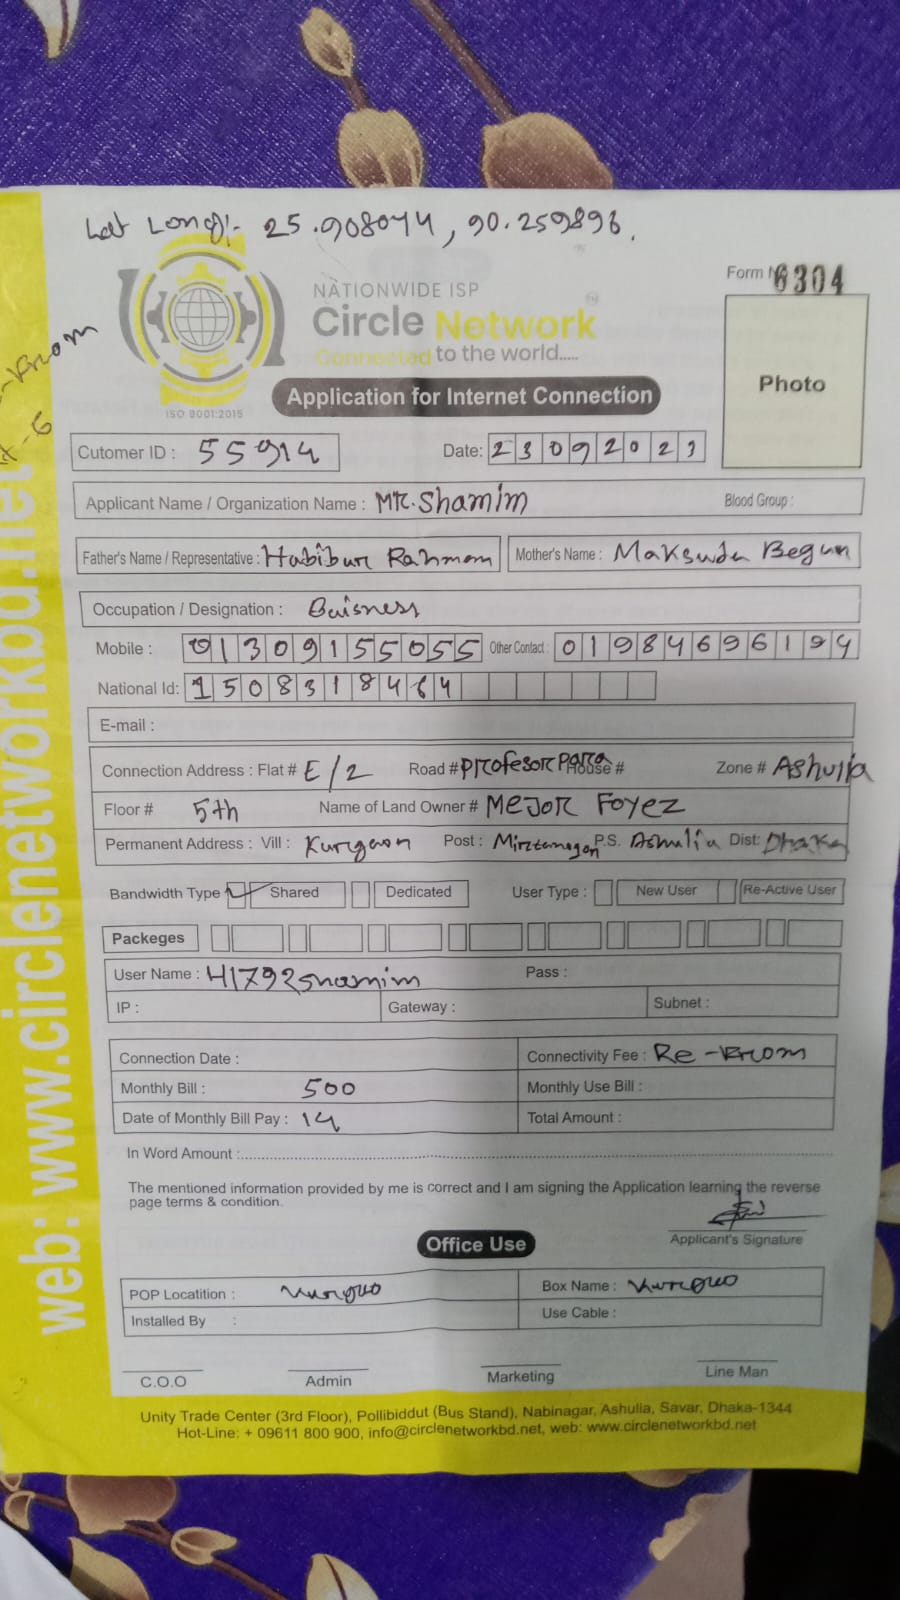 Lat Long:- 25.908044, 90.259896.
NATIONWIDE ISP
Form 6304
Circle Network
Connected to the world.....
ISO 9001:2015
Photo
Application for Internet Connection
Cutomer ID : 55914 Date: 23092023
Applicant Name / Organization Name : MR. Shamim Blood Group :
Father's Name / Representative : Habibur Rahman Mother's Name : Maksuda Begum
Occupation / Designation : Buisness
Mobile : 01309155055 Other Contact : 01984696194
National Id: 1508318464
E-mail :
Connection Address : Flat # E/2 Road # Profesor Para House # Zone # Ashulia
Floor # 5th Name of Land Owner # MEJOR FOYEZ
Permanent Address : Vill : Kurgaon Post : Mirzanagar P.S. Ashulia Dist: Dhaka
Bandwidth Type Shared Dedicated User Type : New User Re-Active User
Packeges
User Name : H1792shamim Pass :
IP : Gateway : Subnet :
Connection Date : Connectivity Fee : Re -
Monthly Bill : 500 Monthly Use Bill :
Date of Monthly Bill Pay : 14 Total Amount :
In Word Amount :
The mentioned information provided by me is correct and I am signing the Application learning the reverse
page terms & condition.
Applicant's Signature
Office Use
POP Locatition : Box Name :
Installed By : Use Cable :
C.O.O Admin Marketing Line Man
Unity Trade Center (3rd Floor), Pollibiddut (Bus Stand), Nabinagar, Ashulia, Savar, Dhaka-1344
Hot-Line: + 09611 800 900, info@circlenetworkbd.net, web: www.circlenetworkbd.net
web: www.circlenetworkbd.net